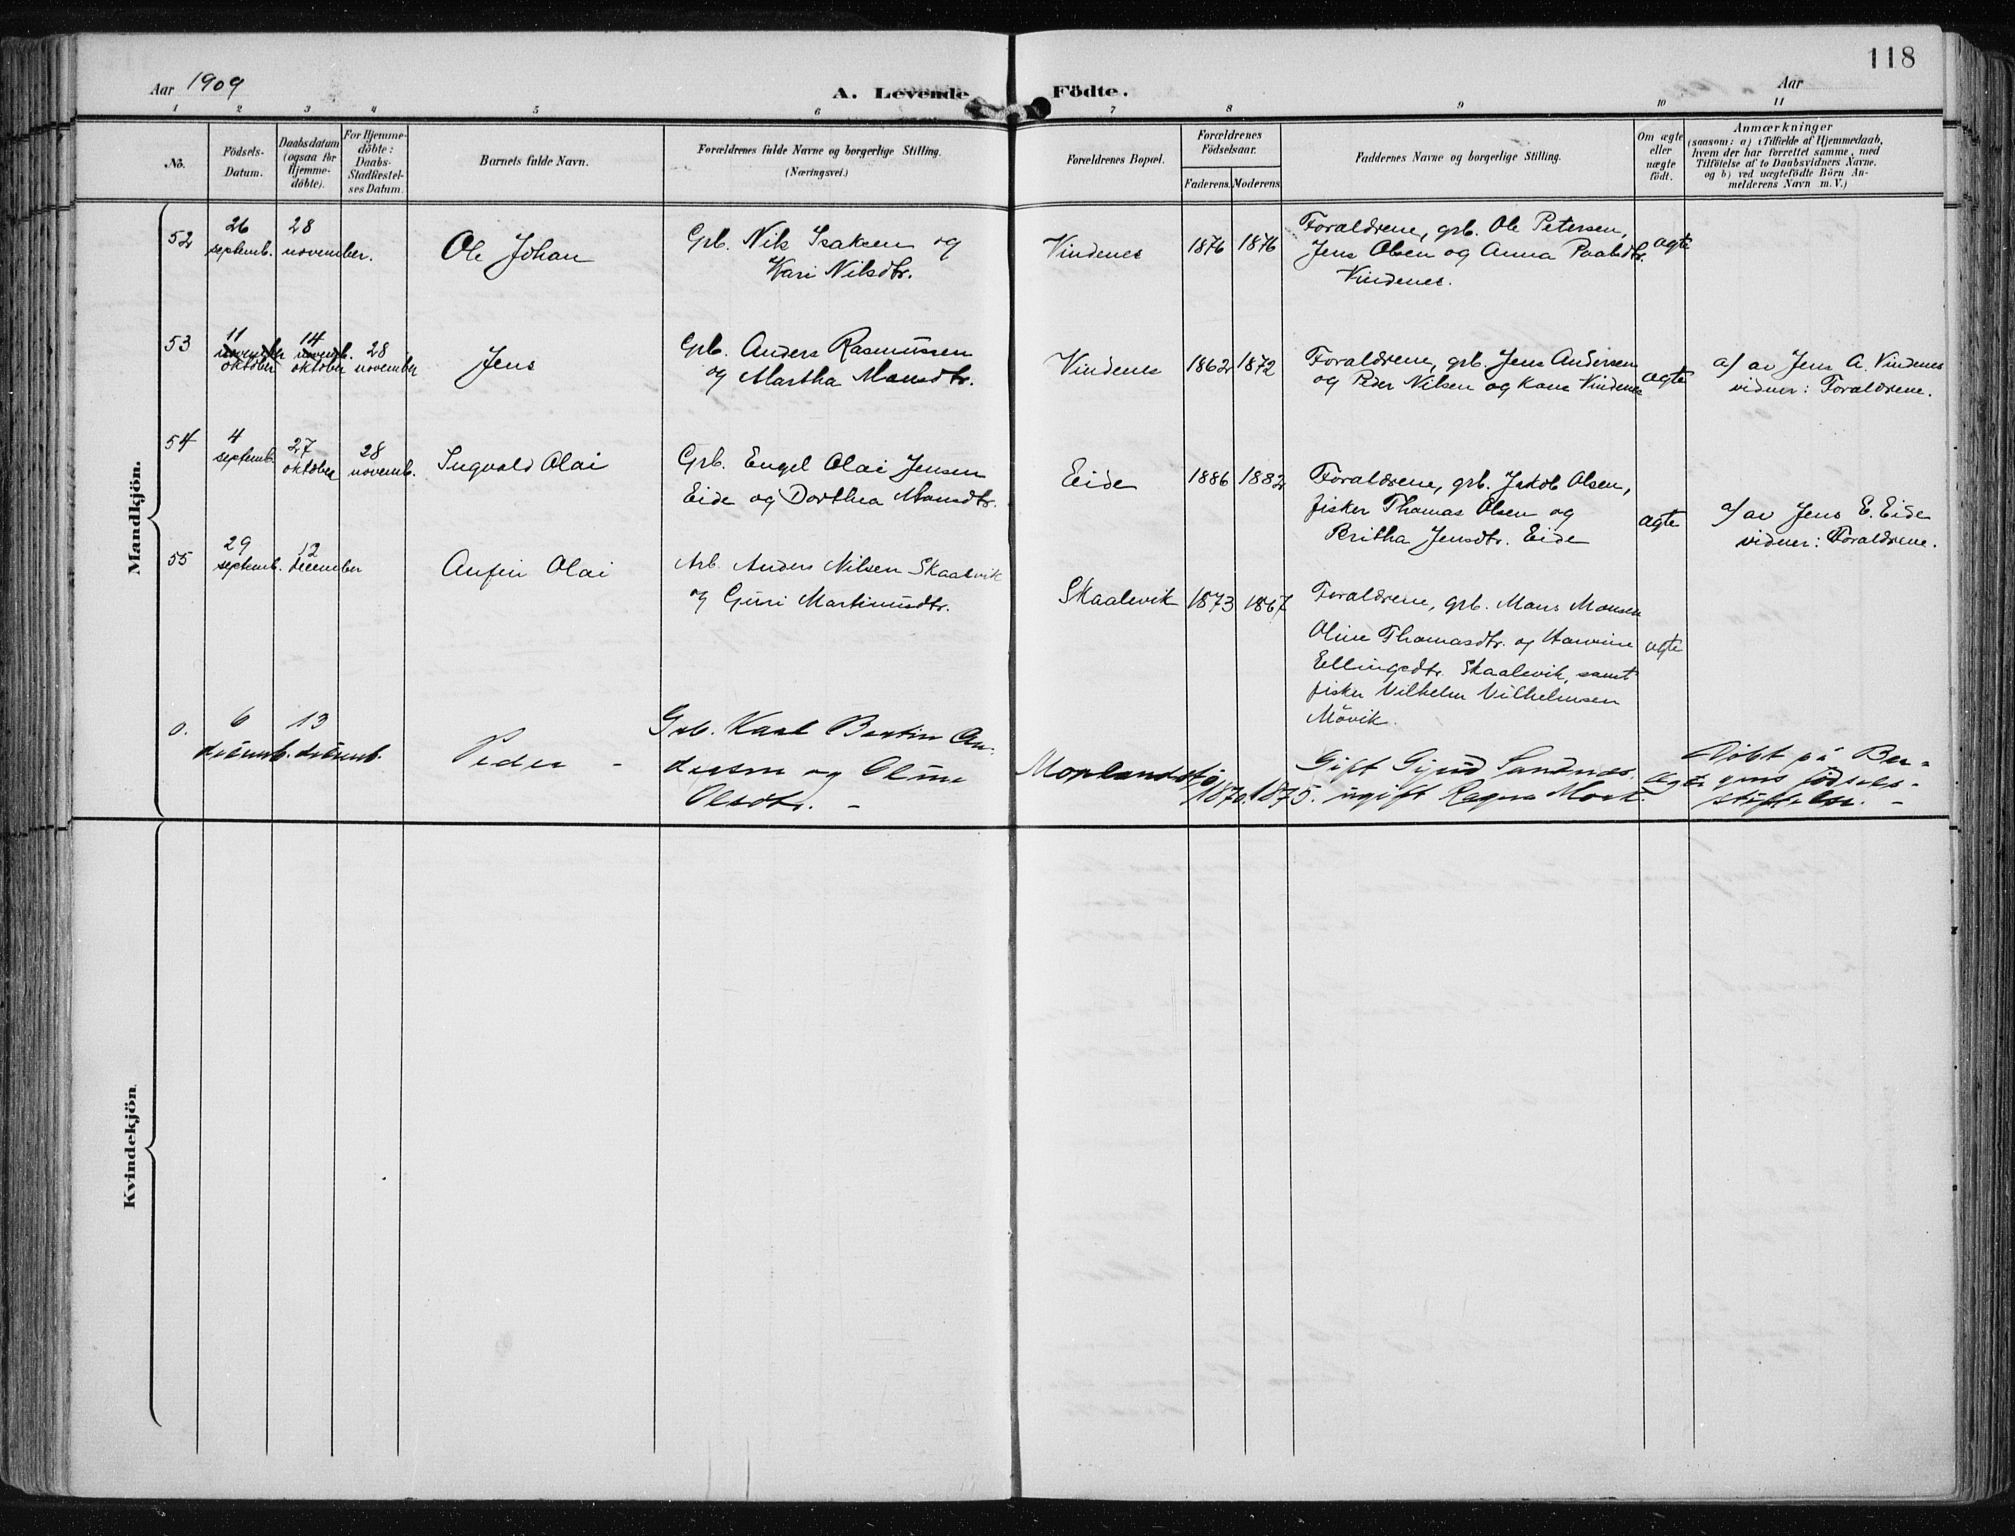 118
Aar 1909
A. Levende
Födte.
Aar
1 2 3 4 5 6 7 8 9 10 11
No.
Födsels-
Datum.
Daabsdatum
(ogsaa for
Hjemme-
döbte).
For Hjemme-
döbte:
Daabs-
Stadfæstel-
ses Datum.
Barnets fulde Navn.
Forældrenes fulde Navne og borgerlige Stilling.
(Næringsvei.)
Forældrenes Bopæl.
Forældrenes
Födselsaar.
Faderens. Moderens.
Faddernes Navne og borgerlige Stilling.
Om ægte
eller
uægte
födt.
Anmærkninger
(saasom: a) i Tilfælde af Hjemmedaab,
hvem der har forrettet samme, med
Tilföielse af to Daabsvidners Navne.
og b) ved uægtefödte Börn An-
melderens Navn m. V.)
Mandkjön.
52
26
septemb.
28
november.
Ole Johan
Grb. Nils Isaksen og
Kari Nilsdtr.
Vindenes
1876
1876
Forældrene, grb. Ole Petersen,
Jens Olsen og Anna Paalsdtr.
Vindenes.
ægte
53
11
november
oktober
14
novemb.
oktober
28
november
Jens
Grb. Anders Rasmussen
og Martha Monsdtr.
Vindenes
1862
1872
Forældrene, grb. Jens Andersen
og Peder Nilsen og kone Vindenes
ægte
a/ av Jens A. Vindenes
vidner: Forældrene.
54
4
septemb.
27
oktober
28
novemb.
Ingvald Olai
Grb. Engel Olai Jensen
Eide og Dorthea Monsdtr.
Eide
1886
1882
Forældrene, grb. Jakob Olsen,
fisker Thomas Olsen og
Britha Jensdtr. Eide
ægte
a/ av Jens E. Eide
vidner: Forældrene.
55
29
septemb.
12
december
Anfin Olai
Arb. Anders Nilsen Skaalevik
og Guri Martinusdtr.
Skaalevik
1873
1867
Forældrene, grb. Mons Monsen
Oline Thomasdtr. og
Ellingsdtr. Skaalevik, samt
fisker Vilhelm Vilhelmsen
Mövik.
ægte
0.
6
desemb.
13
desemb.
Peder -
Grb. Karl Bertin An-
dersen og Oline
Olsdtr. -
1870.
1875.
Gift Sandnes.
ugift Ragna
ægte
Döbt på Ber-
gens födsels-
stiftelse. -
Kvindekjön.